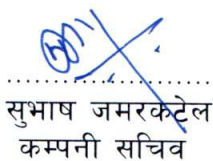 सुभाष जमरकट्टेल
कम्पनी सचिव